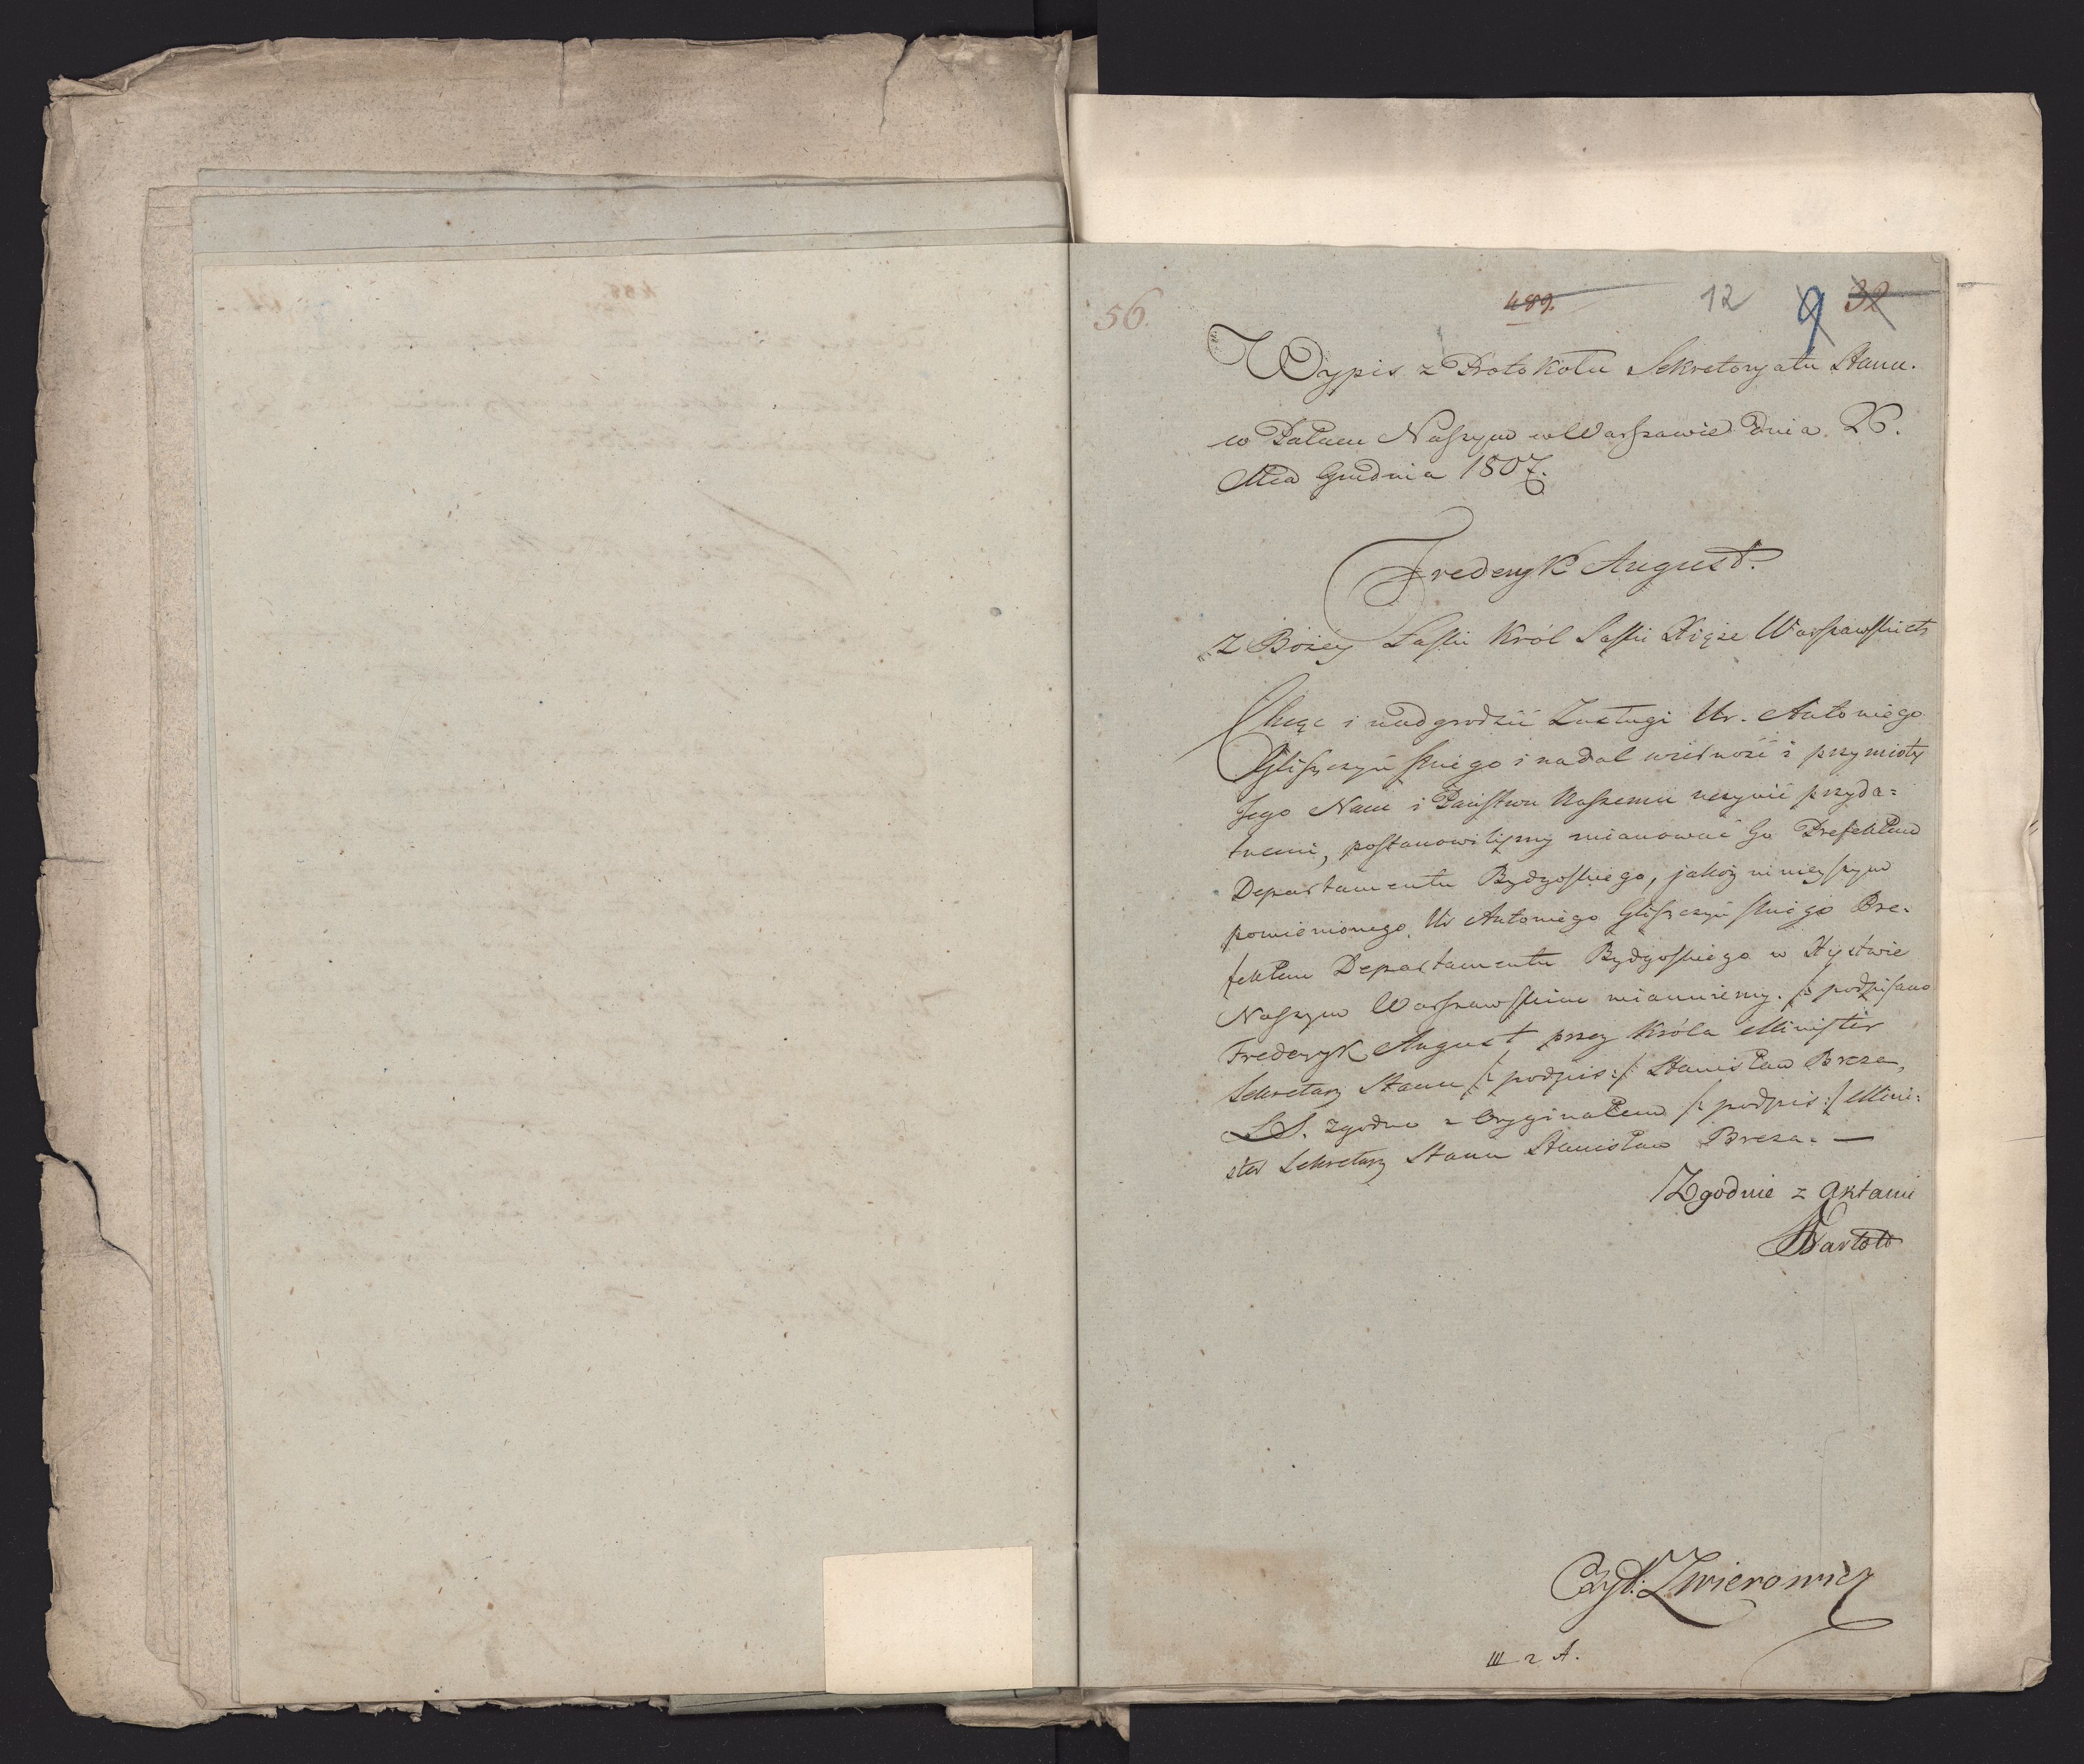 56.
489. 12 9 32
Wypis z Protokołu Sekretoryatu Stanu.
w Pałacu Naszym w Warszawie Dnia 26.
Mca Grudnia 1807.
Frederyk August.
z Bożey Łaski Król Saski Xiąże Warszawski etc
Chcąc i nadgrodzić Zasługi Ur. Antoniego
Gliszczyńskiego i nadal wierność i przymioty
Jego Nam i Państwu Naszemu uczynić przyda=
tnemi, postanowilismy mianować Go Prefektem
Departamentu Bydgoskiego, jakoż ninieyszym
pomienionego Ur Antoniego Gliszczyńskiego Pre=
fektem Departamentu Bydgoskiego w Xięstwie
Naszym Warszawskim mianuiemy. /: podpisano
Frederyk August przez Króla Minister
Sekretarz Stanu /: podpis :/ Stanisław Breza,
LS. Zgodno z Oryginałem /: podpis :/ Mini=
ster Sekretarz Stanu Stanisław Breza. —
Zgodnie z Aktami
Czyt: Zwierowicz
III 2 A.